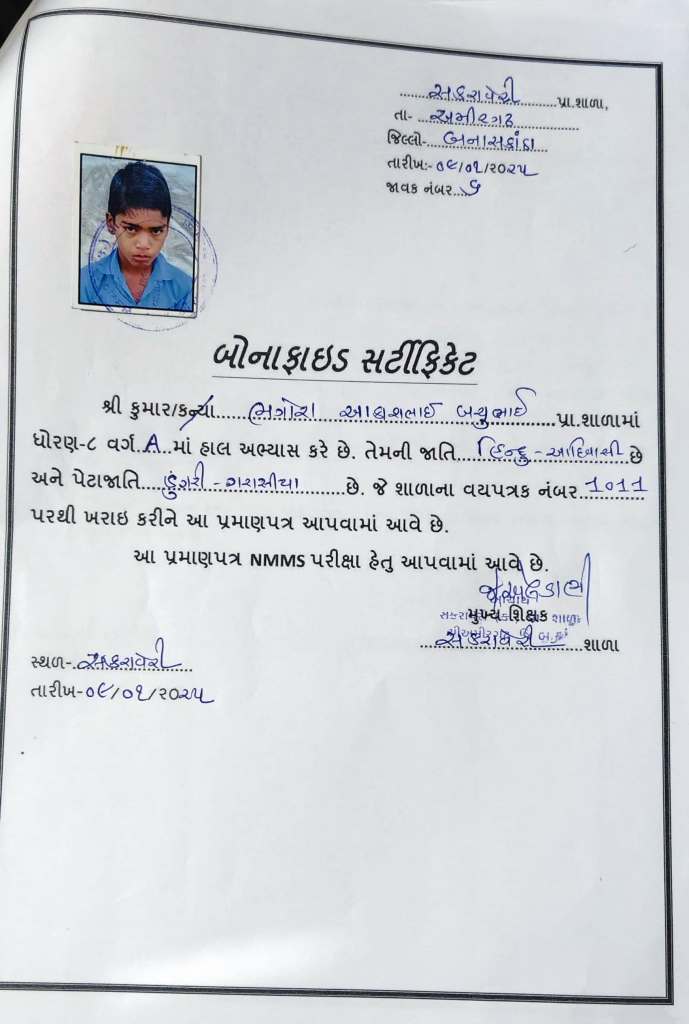 સકરાવેરી પ્રા.શાળા,
તા- અમીરગઢ
જિલ્લો- બનાસકાંઠા
તારીખ:- ૦૯/૦૧/૨૦૨૫
જાવક નંબર...
બોનાફાઇડ સર્ટીફિકેટ
શ્રી કુમાર/કન્યા... ભગોરા આકાશભાઈ બચુભાઈ ...પ્રા.શાળામાં
ધોરણ-૮ વર્ગ A માં હાલ અભ્યાસ કરે છે. તેમની જાતિ... હિન્દુ - આદિવાસી છે
અને પેટાજાતિ... ડુંગરી - ગરાસીયા ...છે. જે શાળાના વયપત્રક નંબર... 1011
પરથી ખરાઇ કરીને આ પ્રમાણપત્ર આપવામાં આવે છે.
આ પ્રમાણપત્ર NMMS પરીક્ષા હેતુ આપવામાં આવે છે.
આચાર્ય
મુખ્ય શિક્ષક
સકરાવેરી શાળા
સ્થળ- સકરાવેરી
તારીખ- ૦૯/૦૧/૨૦૨૫